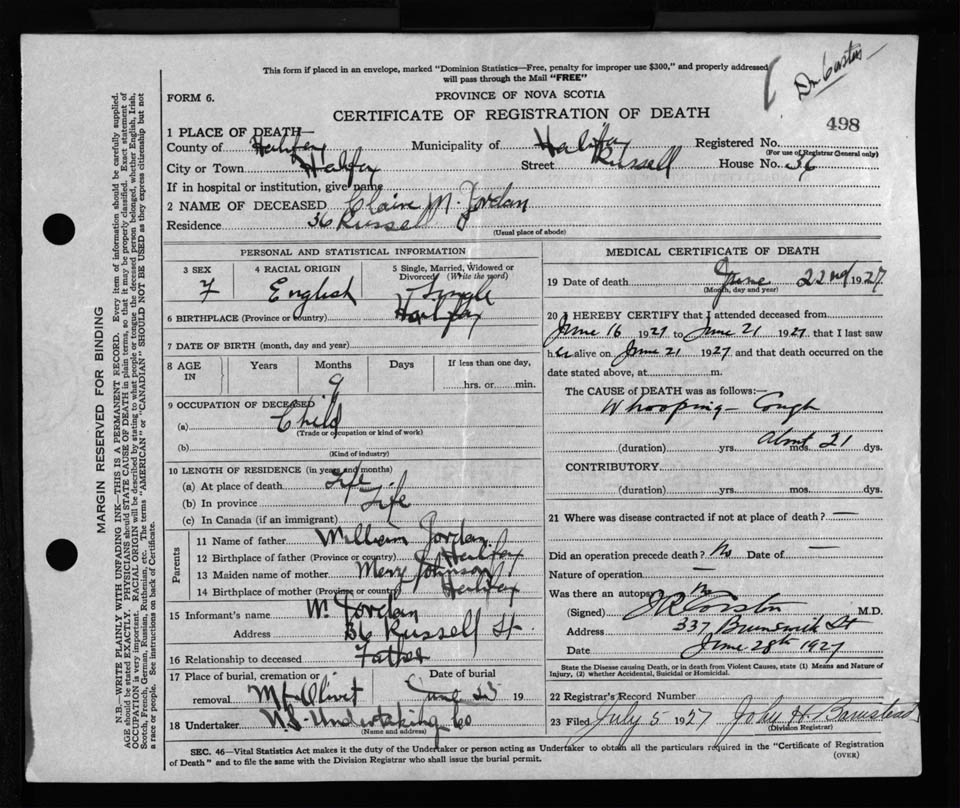 This form if placed in an envelope, marked "Dominion Statistics—Free, penalty for improper use $300," and properly addressed
will pass through the Mail "FREE"
FORM 6.
PROVINCE OF NOVA SCOTIA
CERTIFICATE OF REGISTRATION OF DEATH
498
1 PLACE OF DEATH—
County of Halifax Municipality of Halifax Registered No.
(For use of Registrar General only)
City or Town Halifax Street Russell House No. 36
If in hospital or institution, give name
2 NAME OF DECEASED Claire M. Jordan
Residence 36 Russell
(Usual place of abode)
PERSONAL AND STATISTICAL INFORMATION
3 SEX 4 RACIAL ORIGIN 5 Single, Married, Widowed or
Divorced (Write the word)
F English Single
6 BIRTHPLACE (Province or country) Halifax
7 DATE OF BIRTH (month, day and year)
8 AGE IN Years Months Days If less than one day,
9 hrs. or min.
9 OCCUPATION OF DECEASED
(a) Child
(Trade or occupation or kind of work)
(b)
(Kind of industry)
10 LENGTH OF RESIDENCE (in years and months)
(a) At place of death Life
(b) In province Life
(c) In Canada (if an immigrant)
Parents
11 Name of father William Jordan
12 Birthplace of father (Province or country) Halifax
13 Maiden name of mother Mary Johnson
14 Birthplace of mother (Province or country) Halifax
15 Informant's name W. Jordan
Address 36 Russell St.
16 Relationship to deceased Father
17 Place of burial, cremation or Date of burial
removal Mt Olivet June 23 19
18 Undertaker N.S. Undertaking Co
(Name and address)
MEDICAL CERTIFICATE OF DEATH
19 Date of death June 22nd 1927
(Month, day and year)
20 I HEREBY CERTIFY that I attended deceased from
June 16 1927 to June 21 1927 that I last saw
her alive on June 21 1927 and that death occurred on the
date stated above, at m.
The CAUSE of DEATH was as follows:—
Whooping-Cough
(duration) yrs. mos. about 21 dys.
CONTRIBUTORY
(duration) yrs. mos. dys.
21 Where was disease contracted if not at place of death? —
Did an operation precede death? No Date of —
Nature of operation —
Was there an autopsy? No
(Signed) M.D.
Address 337 Brunswick St
Date June 28th 1927
State the Disease causing Death, or in death from Violent Causes, state (1) Means and Nature of
Injury, (2) whether Accidental, Suicidal or Homicidal.
22 Registrar's Record Number
23 Filed July 5 1927 John H. Barnstead
(Division Registrar)
SEC. 46—Vital Statistics Act makes it the duty of the Undertaker or person acting as Undertaker to obtain all the particulars required in the "Certificate of Registration
of Death" and to file the same with the Division Registrar who shall issue the burial permit.
(OVER)
MARGIN RESERVED FOR BINDING
N.B.—WRITE PLAINLY WITH UNFADING INK—THIS IS A PERMANENT RECORD. Every item of information should be carefully supplied.
AGE should be stated EXACTLY. PHYSICIANS should STATE CAUSE OF DEATH in plain terms, so that it may be properly classified. Exact statement of
OCCUPATION is very important. RACIAL ORIGIN will be described by stating to what people or tongue the deceased person belonged, whether English, Irish,
Scotch, French, German, Russian, Ruthenian, etc. The terms "AMERICAN" or "CANADIAN" SHOULD NOT BE USED as they express citizenship but not
a race or people. See instructions on back of Certificate.